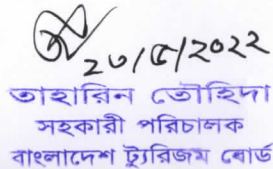 ২৩/৫/২০২২
তাহারিন তৌহিদা
সহকারী পরিচালক
বাংলাদেশ ট্যুরিজম বোর্ড